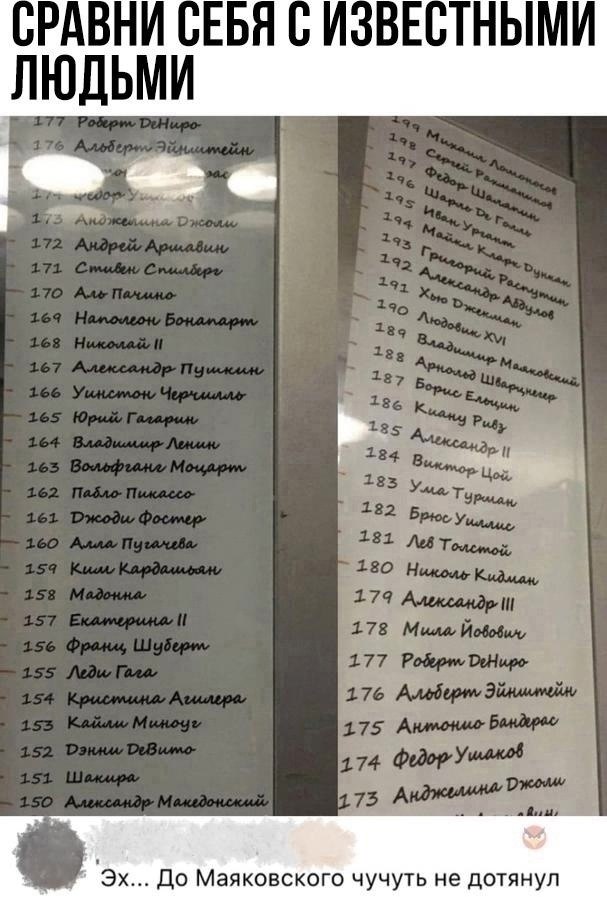 СРАВНИ СЕБЯ С ИЗВЕСТНЫМИ
ЛЮДЬМИ
177 Роберт ДеНиро
176 Альберт Эйнштейн
174 Федор Ушаков
173 Анджелина Джоли
172 Андрей Аршавин
171 Стивен Спилберг
170 Аль Пачино
169 Наполеон Бонапарт
168 Николай II
167 Александр Пушкин
166 Уинстон Черчилль
165 Юрий Гагарин
164 Владимир Ленин
163 Вольфганг Моцарт
162 Пабло Пикассо
161 Джоди Фостер
160 Алла Пугачева
159 Ким Кардашьян
158 Мадонна
157 Екатерина II
156 Франц Шуберт
155 Леди Гага
154 Кристина Агилера
153 Кайли Миноуг
152 Дэнни ДеВито
151 Шакира
150 Александр Македонский
199 Михаил Ломоносов
198 Сергей Рахманинов
197 Федор Шаляпин
196 Шарль Де Голль
195 Иван Ургант
194 Майкл Кларк Дункан
193 Григорий Распутин
192 Александр Абдулов
191 Хью Джекман
190 Людовик XVI
189 Владимир Маяковский
188 Арнольд Шварцнегер
187 Борис Ельцин
186 Киану Ривз
185 Александр II
184 Виктор Цой
183 Ума Турман
182 Брюс Уиллис
181 Лев Толстой
180 Николь Кидман
179 Александр III
178 Мила Йовович
177 Роберт ДеНиро
176 Альберт Эйнштейн
175 Антонио Бандерас
174 Федор Ушаков
173 Анджелина Джоли
Эх... До Маяковского чучуть не дотянул